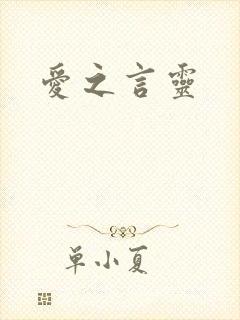 愛之言靈
單小夏